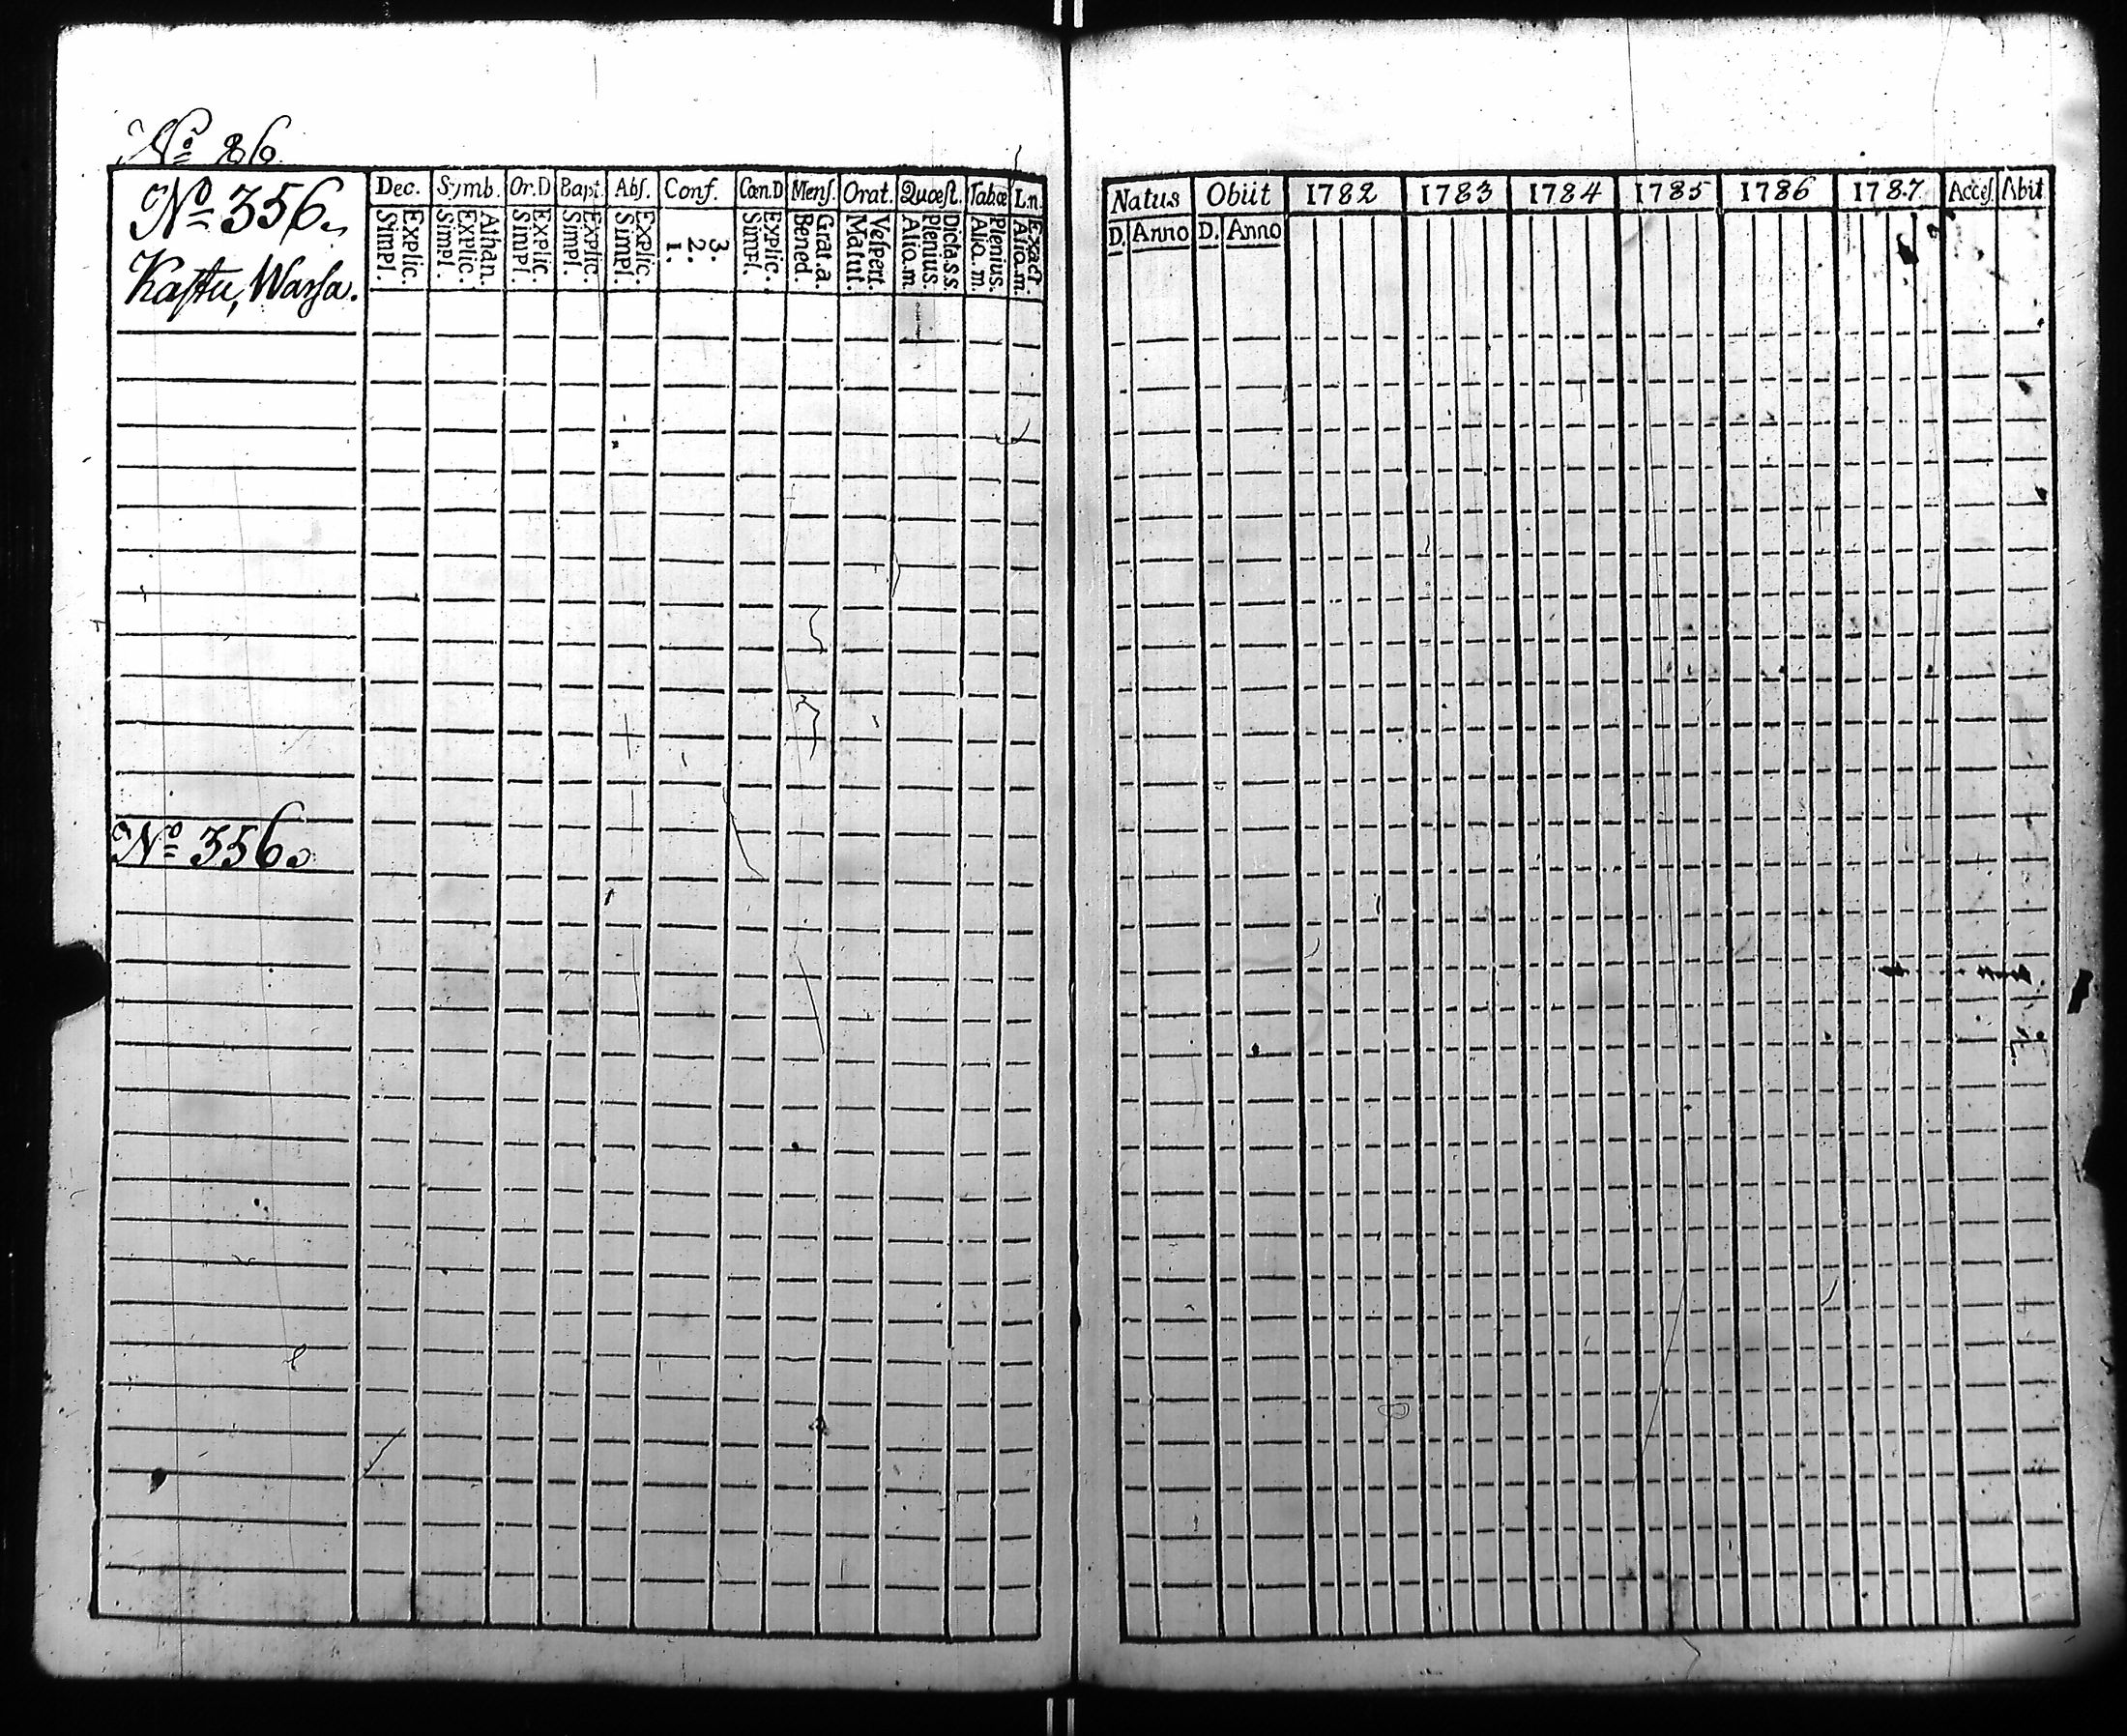 No 86.
No 356.
Kastu, Warsa.
Dec. Symb. Or.D Bapt. Abſ. Conf. Cœn.D Menſ. Orat. Quœſt. Tabœ L.n.
Explic. Simpl. Athan. Explic. Simpl. Explic. Simpl. Explic. Simpl. Explic. Simpl. 3. 2. 1. Explic. Simpl. Grat.a. Bened. Veſpert. Matut. Dicta s.s Plenius. Alio.m Plenius. Alio.m Exact. Alio.m.
No 356.
Natus Obiit 1782 1783 1784 1785 1786 1787 Acceſ. Abit
D. Anno D. Anno